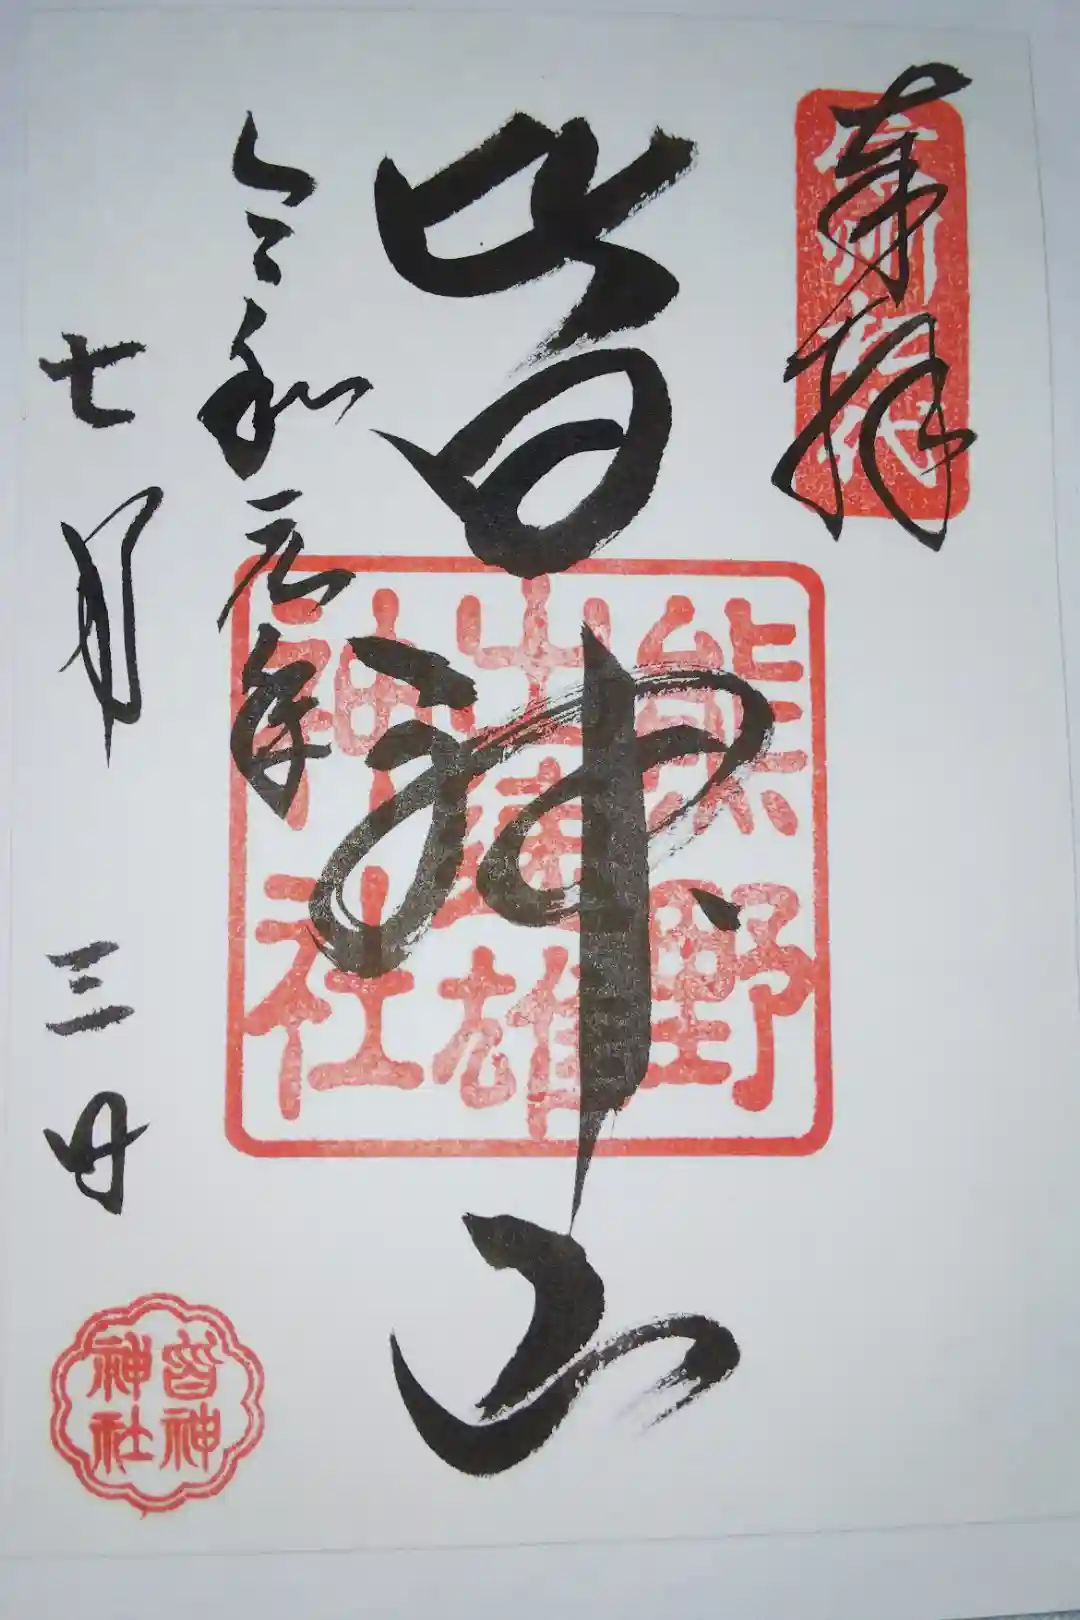 奉拝
信州松代
皆神山
熊野
出速雄
神社
令和元年
七月三日
皆神
神社